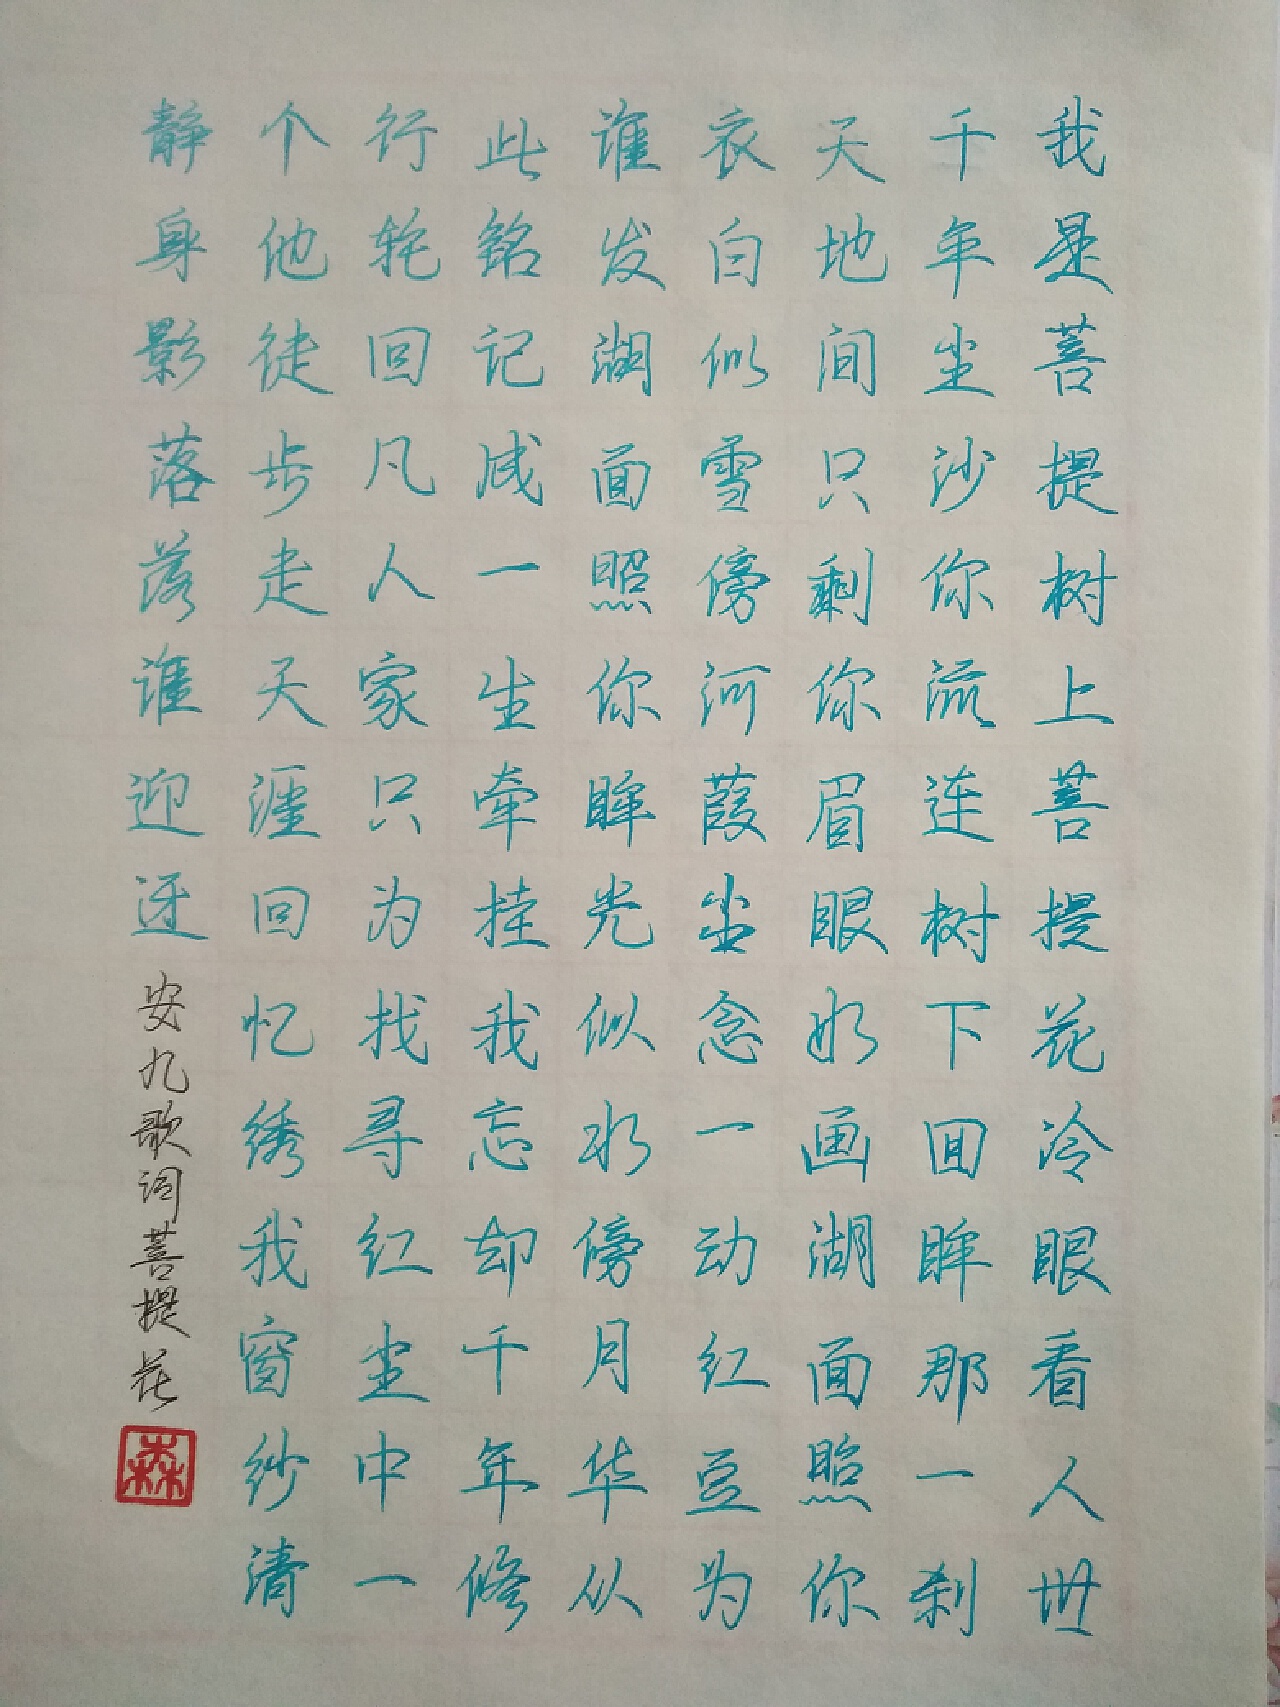 我是菩提树上菩提花冷眼看人世
千年尘沙你流连树下回眸那一刹
天地间只剩你眉眼如画湖面照你
衣白似雪傍河葭尘念一动红豆为
谁发湖面照你眸光似水傍月华从
此铭记成一生牵挂我忘却千年修
行轮回凡人家只为找寻红尘中一
个他徒步走天涯回忆绣我窗纱清
静身影落落谁迎迓
安九歌词菩提花
森